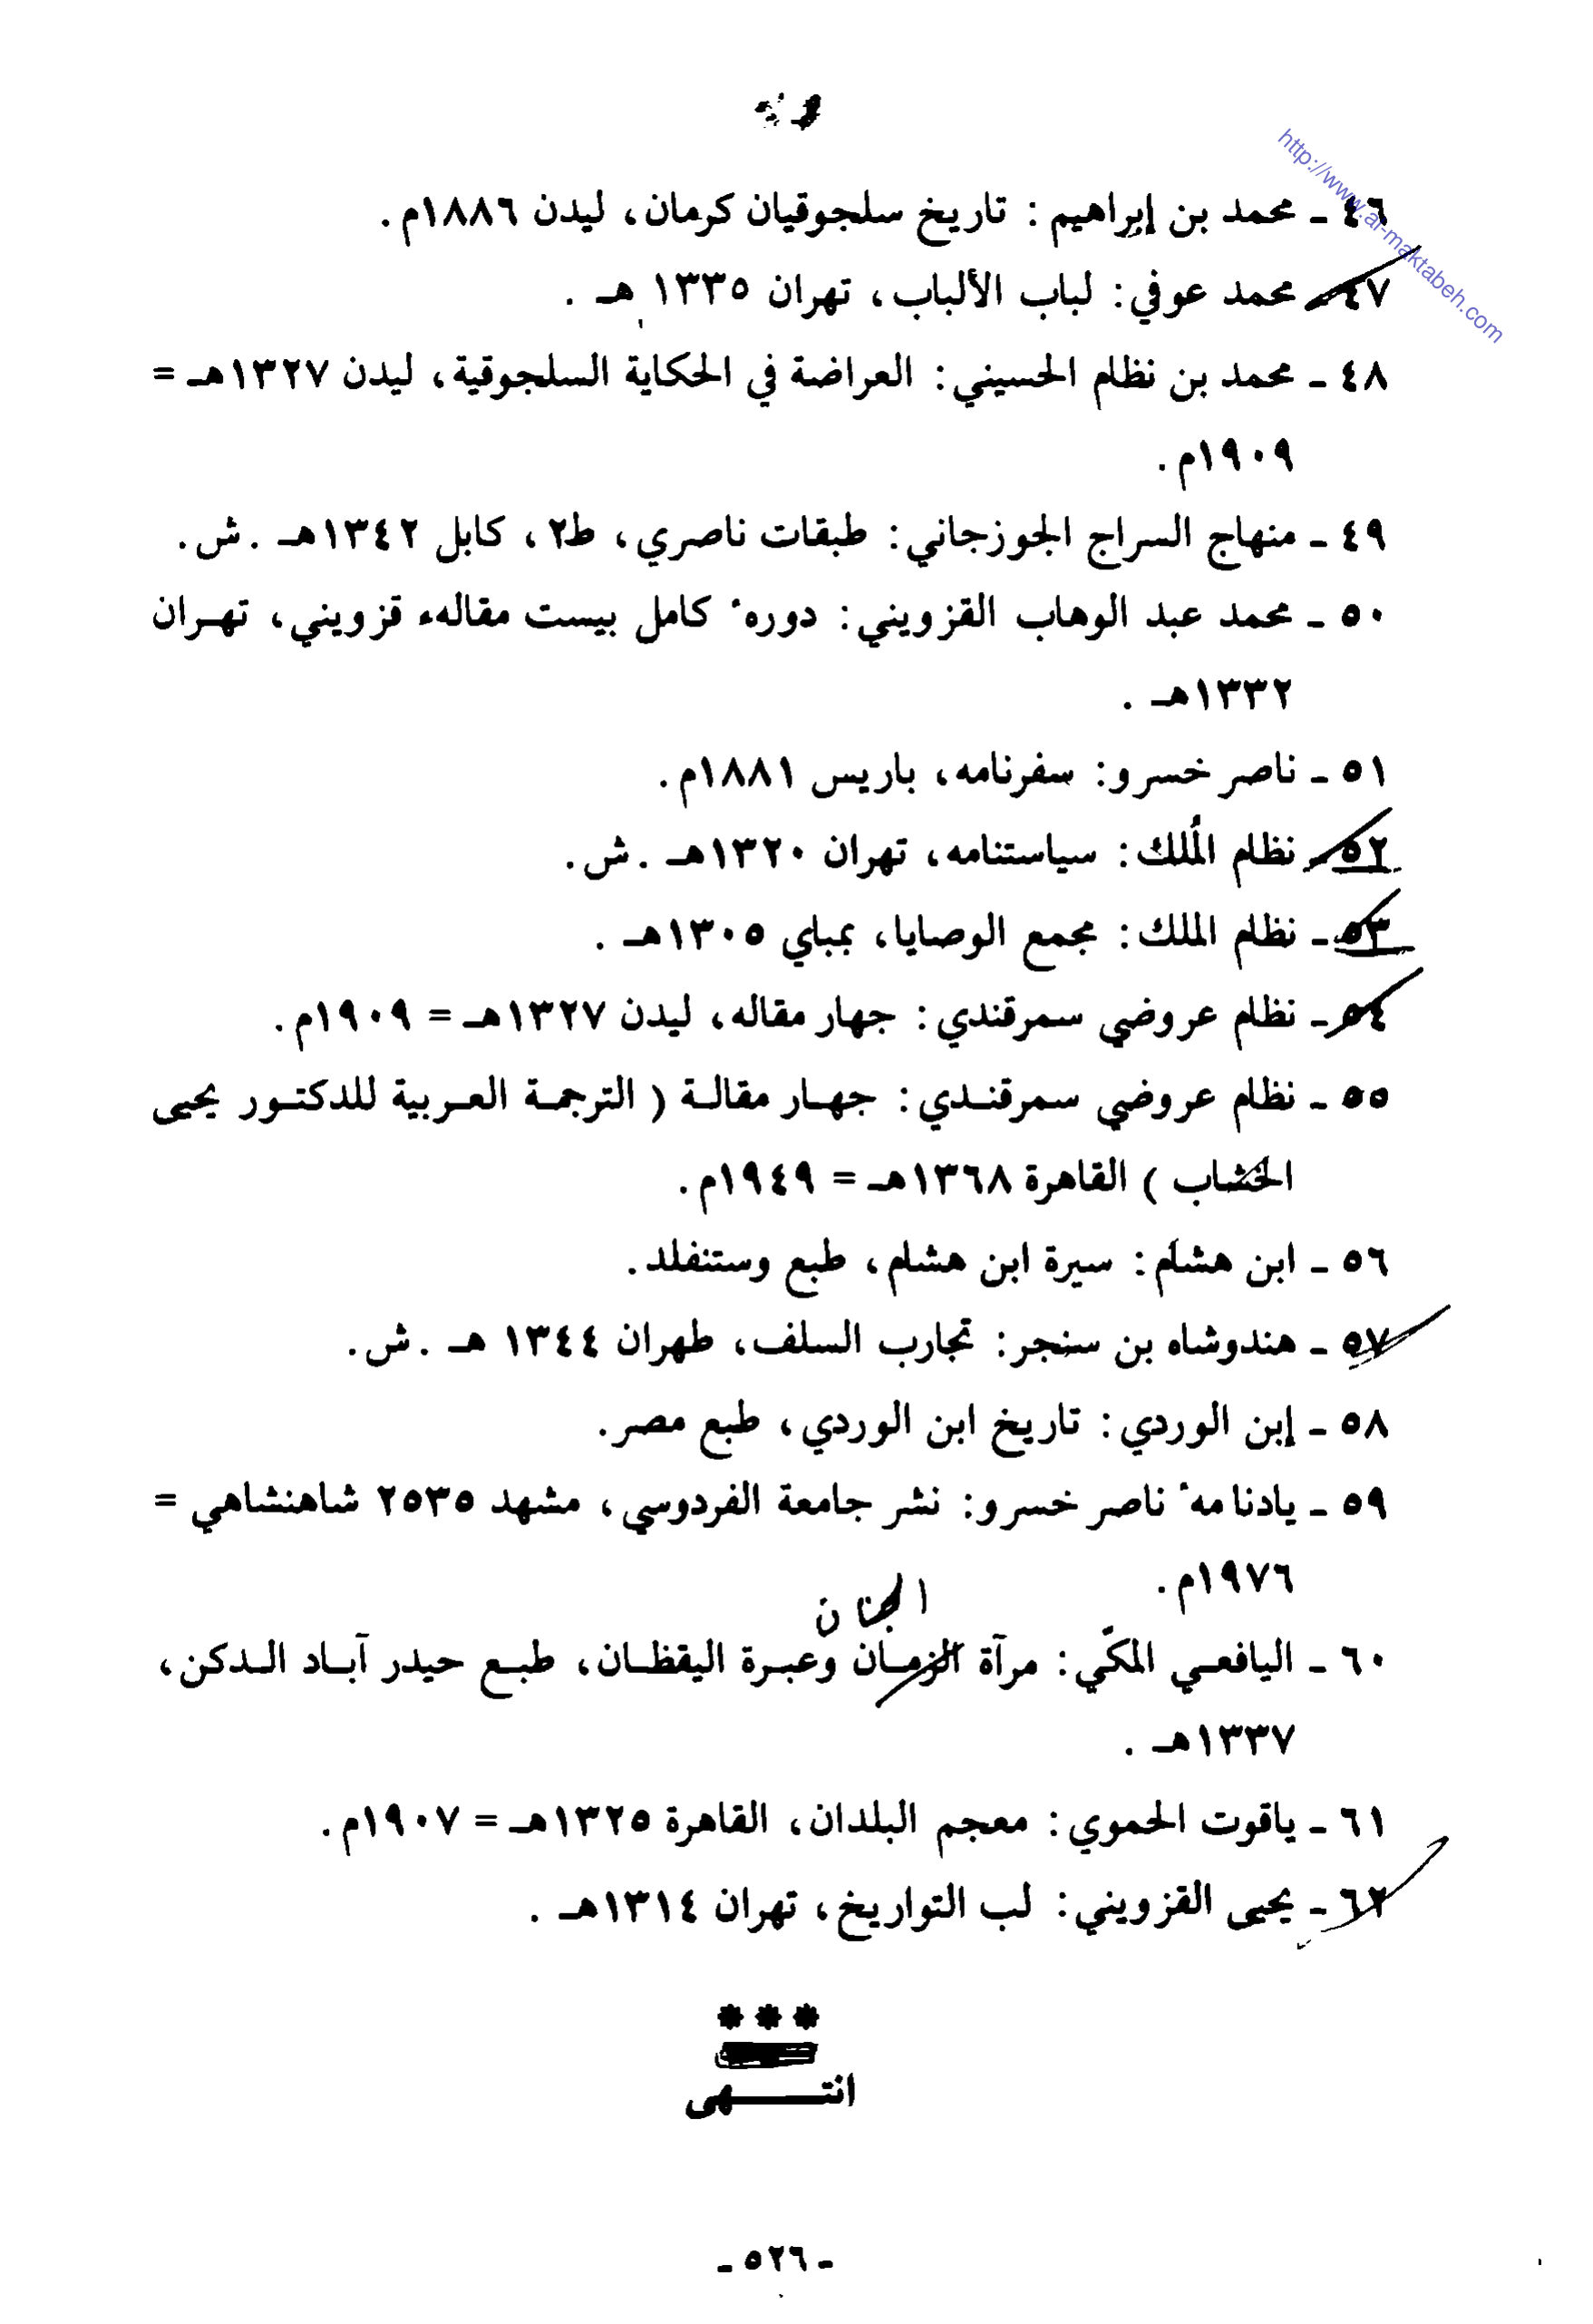 http://www.al-maktabeh.com
٤٦ ـ محمد بن إبراهيم : تاريخ سلجوقيان كرمان، ليدن ١٨٨٦م .
٤٧ ـ محمد عوفي : لباب الألباب، تهران ١٣٣٥ هـ .
٤٨ ـ محمد بن نظام الحسيني : العراضة في الحكاية السلجوقية، ليدن ١٣٢٧هـ =
١٩٠٩م .
٤٩ ـ منهاج السراج الجوزجاني : طبقات ناصري، ط٢، كابل ١٣٤٢هـ .ش.
٥٠ ـ محمد عبد الوهاب القزويني : دورهٔ كامل بيست مقالهء قزويني، تهـران
١٣٣٢هـ .
٥١ ـ ناصر خسرو: سفرنامه، باريس ١٨٨١م.
٥٢ ـ نظام المُلك : سياستنامه، تهران ١٣٢٠هـ .ش.
٥٣ ـ نظام الملك : مجمع الوصايا، بمباي ١٣٠٥هـ .
٥٤ ـ نظام عروضي سمرقندي : جهار مقاله، ليدن ١٣٢٧هـ = ١٩٠٩م.
٥٥ ـ نظام عروضي سمرقنـدي : جهـار مقالـة ( الترجمـة العـربية للدكتـور يحيى
الخشاب ) القاهرة ١٣٦٨هـ = ١٩٤٩م.
٥٦ ـ ابن هشام : سيرة ابن هشام، طبع وستنفلد.
٥٧ ـ هندوشاه بن سنجر: تجارب السلف، طهران ١٣٤٤ هـ .ش.
٥٨ ـ إبن الوردي : تاريخ ابن الوردي، طبع مصر.
٥٩ ـ يادنامهٔ ناصر خسرو: نشر جامعة الفردوسي، مشهد ٢٥٣٥ شاهنشاهي =
١٩٧٦م .
الجنان
٦٠ ـ اليافعـي المكّي : مرآة الزمـان وعبـرة اليقظـان، طبـع حيدر آبـاد الـدكن،
١٣٣٧هـ .
٦١ ـ ياقوت الحموي : معجم البلدان، القاهرة ١٣٢٥هـ = ١٩٠٧م.
٦٢ ـ يحيى القزويني : لب التواريخ، تهران ١٣١٤هـ .
***
انتـــــهى
ـ ٥٢٦ ـ